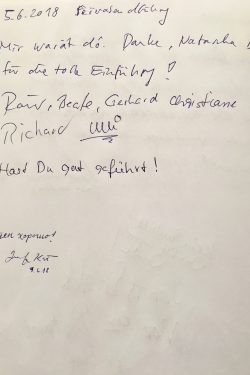 5.6.2018 Privatführung
Mir warât dô. Danke, Natasha
für die tolle Einführung!
Beate, Gerhard Christiane
Richard
Hast Du gut geführt!
хорошо!
9.6.18